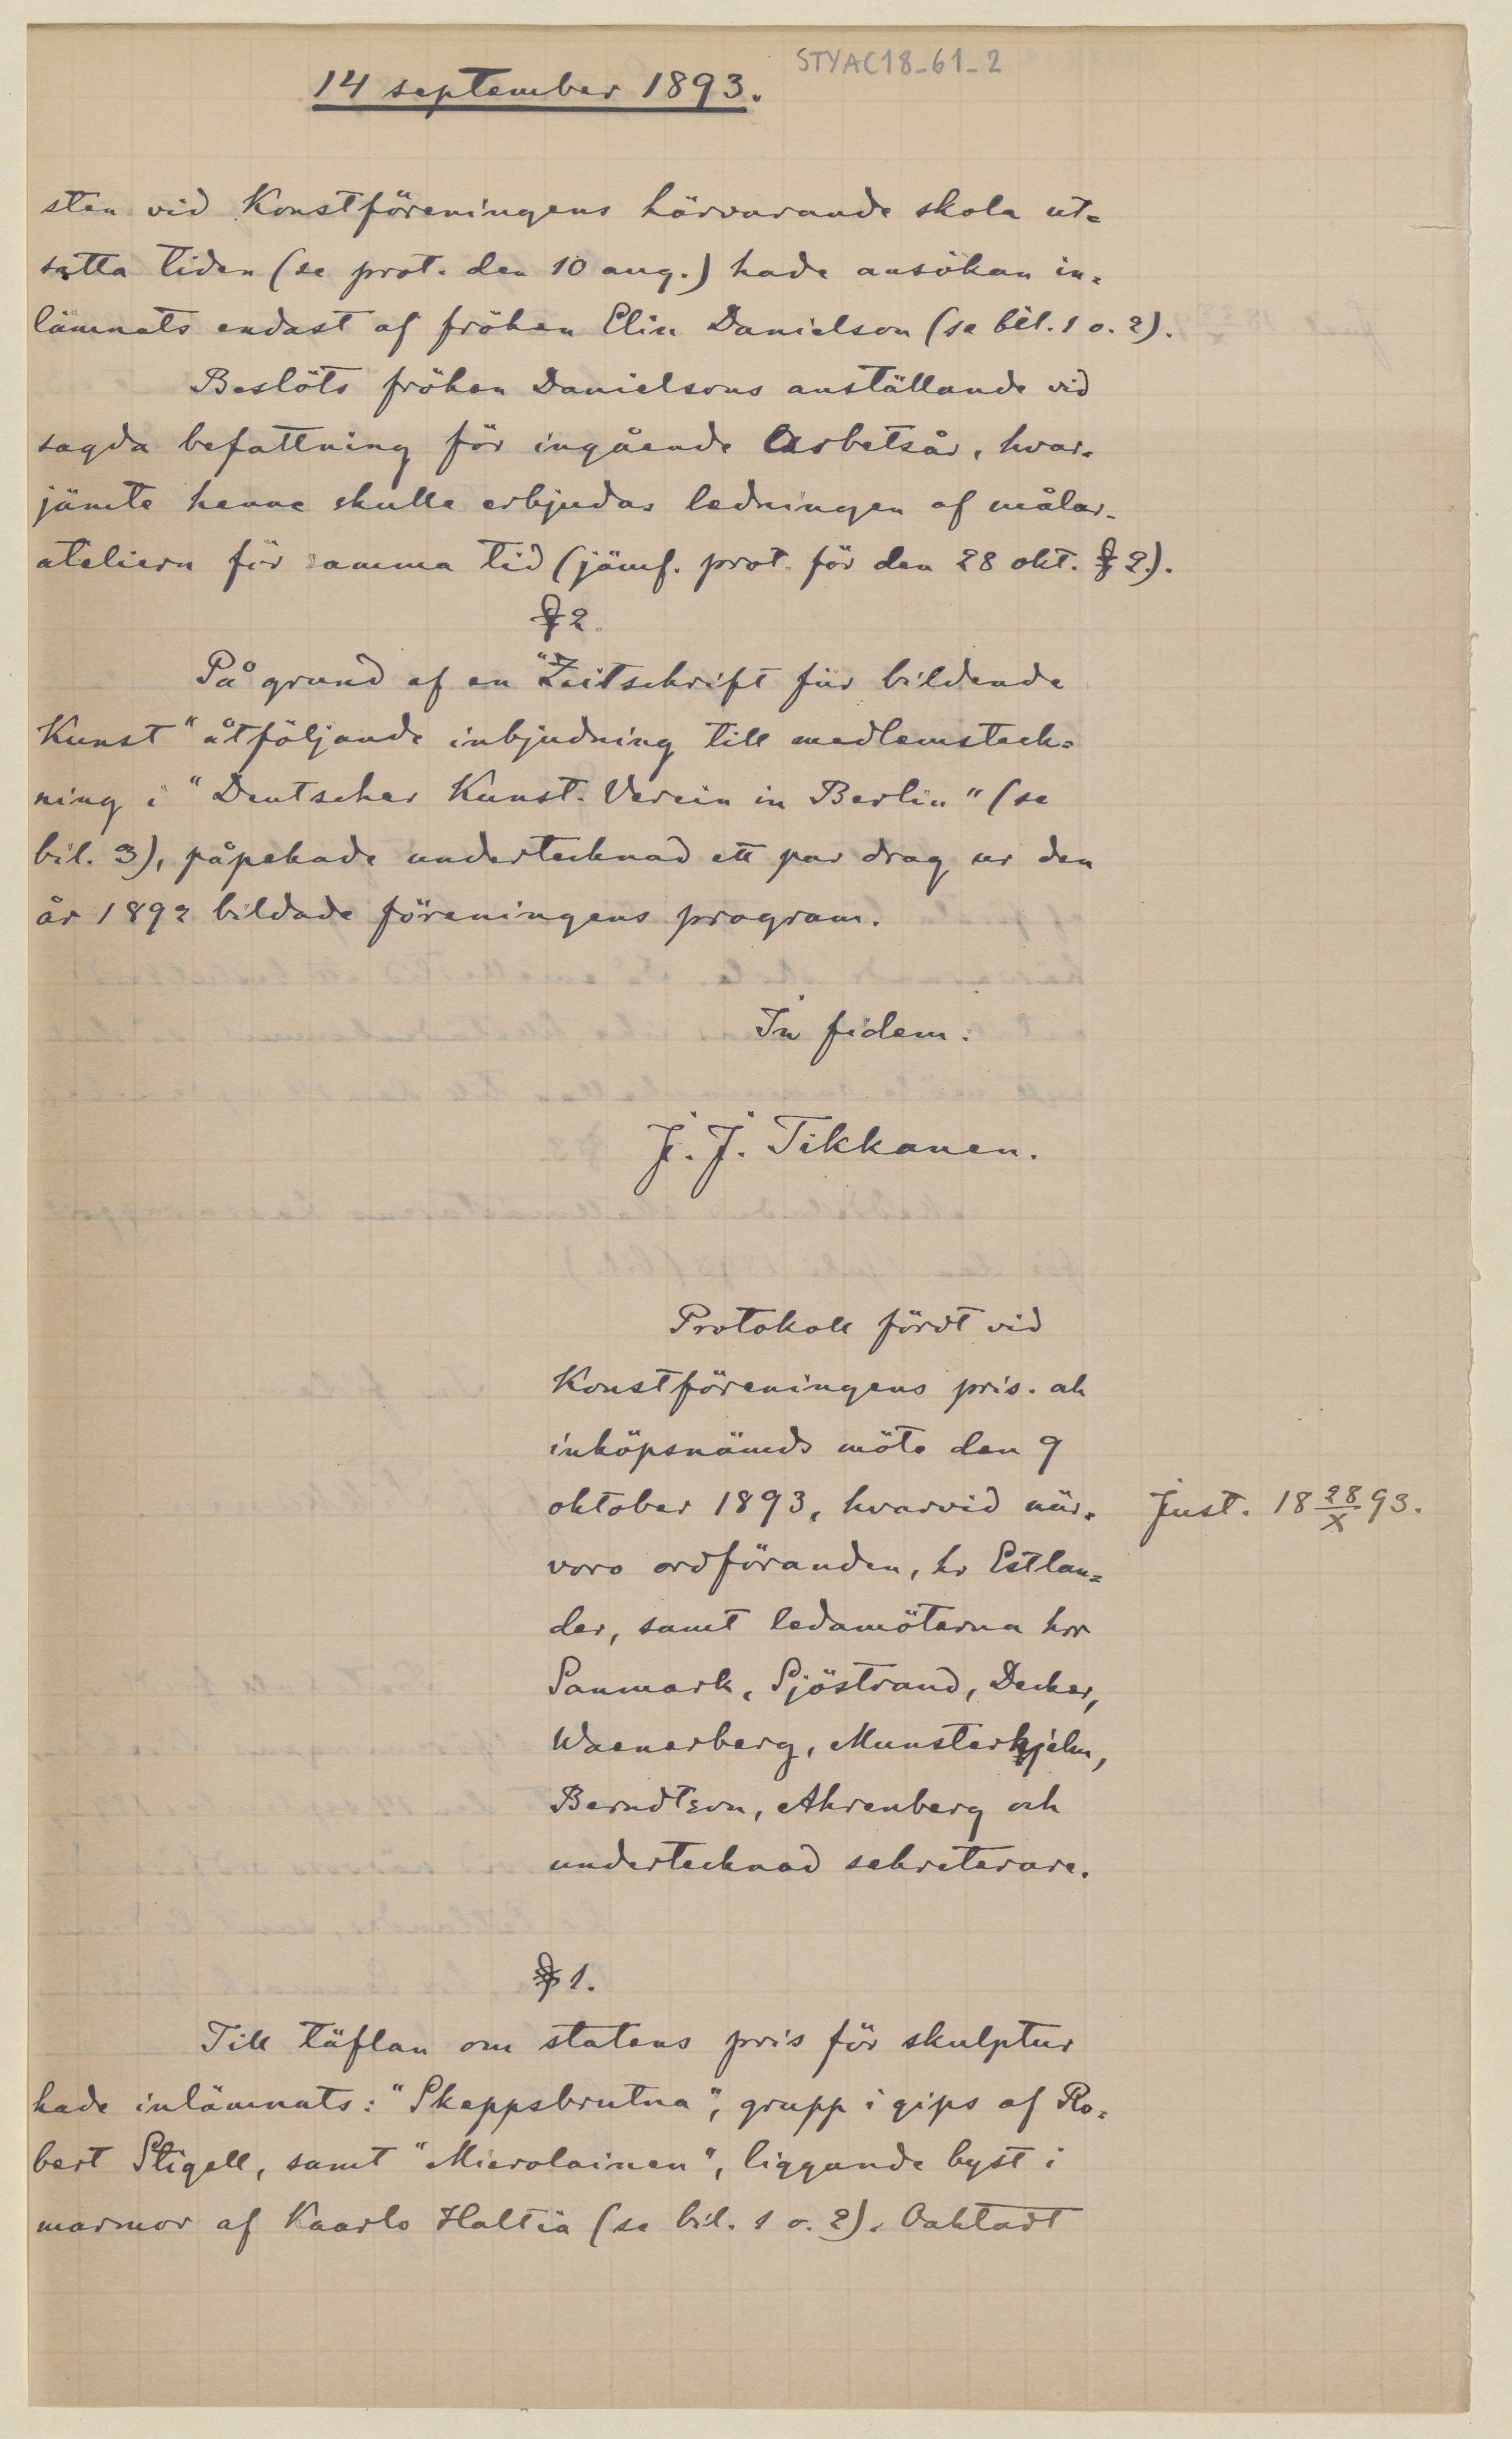 STYAC18-61-2
14 september 1893.
sten vid Konstföreningens härvarande skola ut=
satta tiden (se prot. den 10 aug.) hade ansökan in=
lämnats endast af fröken Elin Danielson (se bil. 1 o. 2).
Beslöts fröken Danielsons anställande vid
sagda befattning för ingående Arbetsår, hvar-
jämte henne skulle erbjudas ledningen af målar-
ateliern för samma tid (jämf. prot. för den 28 okt. § 2.).
§ 2.
På grund af en "Zeitschrift für bildende
Kunst" åtföljande inbjudning till medlemsteck=
ning i "Deutscher Kunst-Verein in Berlin" (se
bil. 3), påpekade undertecknad ett par drag ur den
år 1892 bildade föreningens program.
In fidem:
J. J. Tikkanen.
Protokoll fördt vid
Konstföreningens pris- och
inköpsnämds möte den 9
oktober 1893, hvarvid när=
voro ordföranden, hr Estlan=
der, samt ledamöterna hrr
Sanmark, Sjöstrand, Decker,
Waenerberg, Munsterhjelm,
Berndtson, Ahrenberg och
undertecknad sekreterare.
Just. 18 28/X 93.
§ 1.
Till täflan om statens pris för skulptur
hade inlämnats: "Skeppsbrutna", grupp i gips af Ro=
bert Stigell, samt "Mierolainen", liggande byst i
marmor af Kaarlo Haltia (se bil. 1 o. 2). Oaktadt